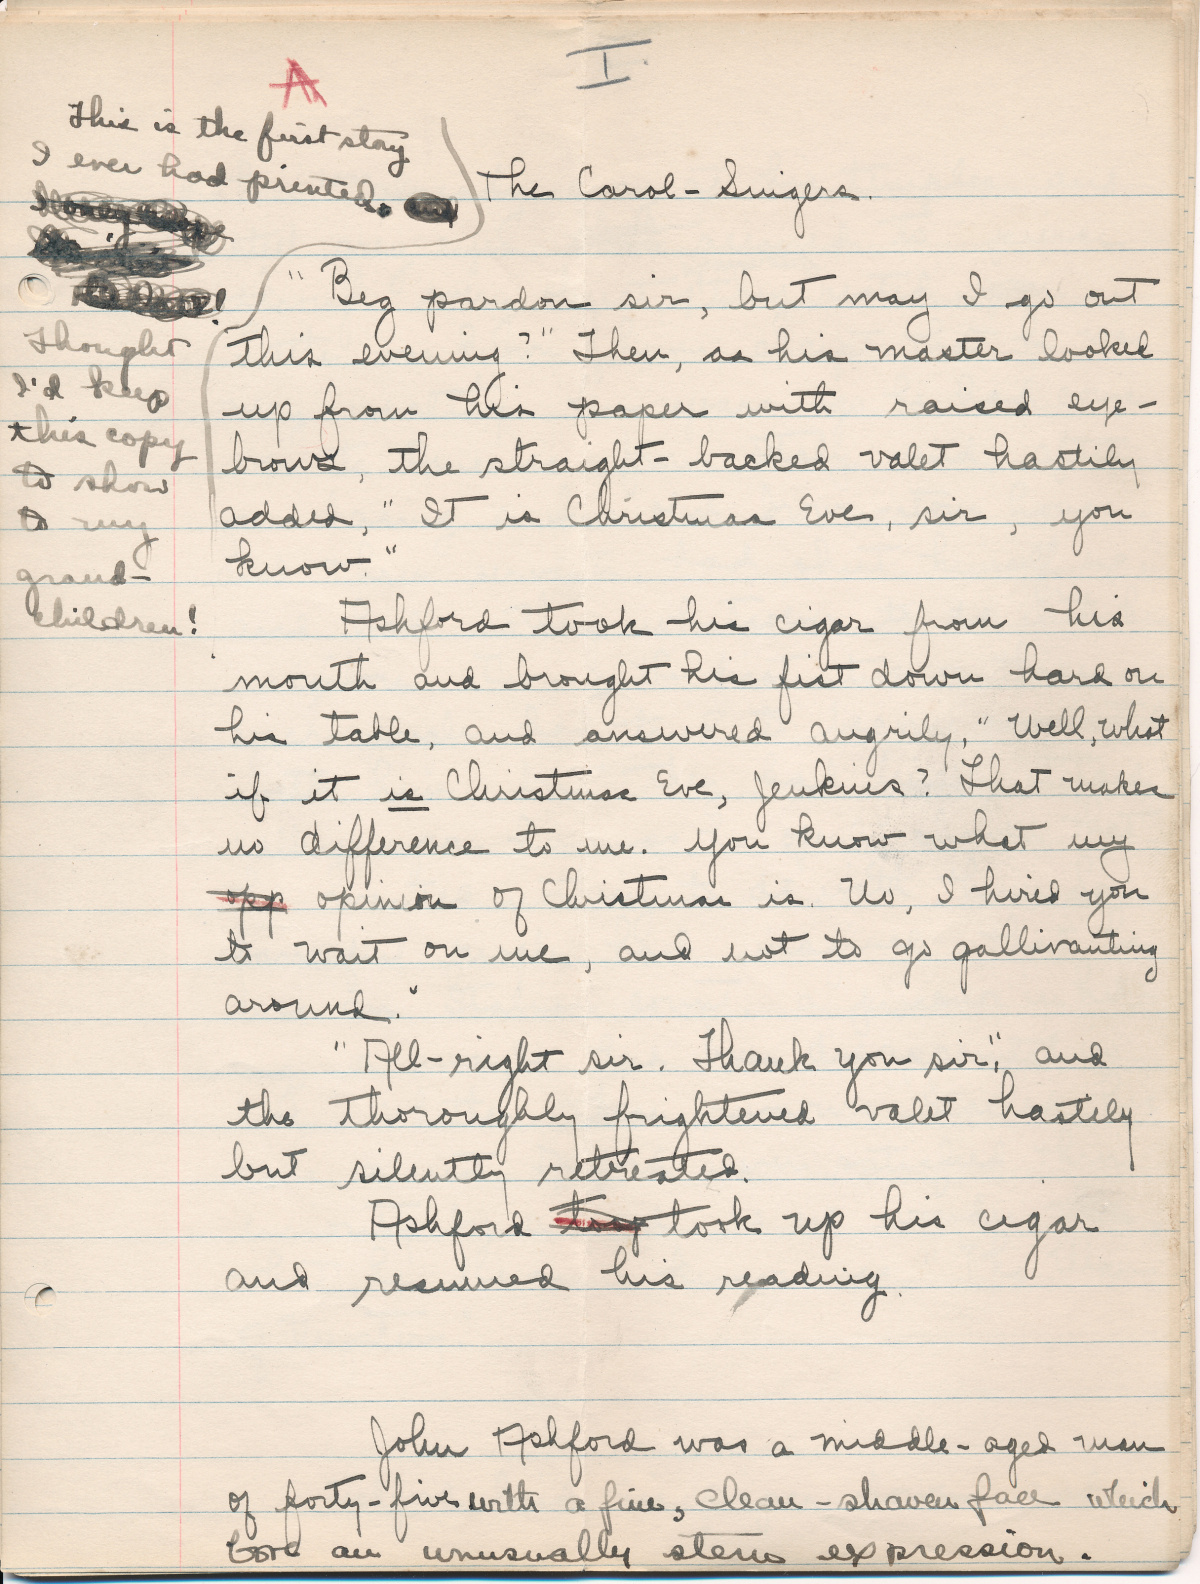 I.
A
This is the first story
I ever had printed.
Thought
I'd keep
this copy
to show
to my
grand-
children!
The Carol-Singers.
"Beg pardon sir, but may I go out
this evening?" Then, as his master looked
up from his paper with raised eye-
brows, the straight-backed valet hastily
added, "It is Christmas Eve, sir, you
know."
Ashford took his cigar from his
mouth and brought his fist down hard on
his table, and answered angrily, "Well, what
if it is Christmas Eve, Jenkins? That makes
no difference to me. You know what my
opp opinion of Christmas is. No, I hired you
to wait on me, and not to go gallivanting
around."
"All-right sir. Thank you sir", and
the thoroughly frightened valet hastely
but silently retreated.
Ashford took up his cigar
and resumed his reading.
John Ashford was a middle-aged man
of forty-five with a fine, clean-shaven face which
bore an unusually stern expression.